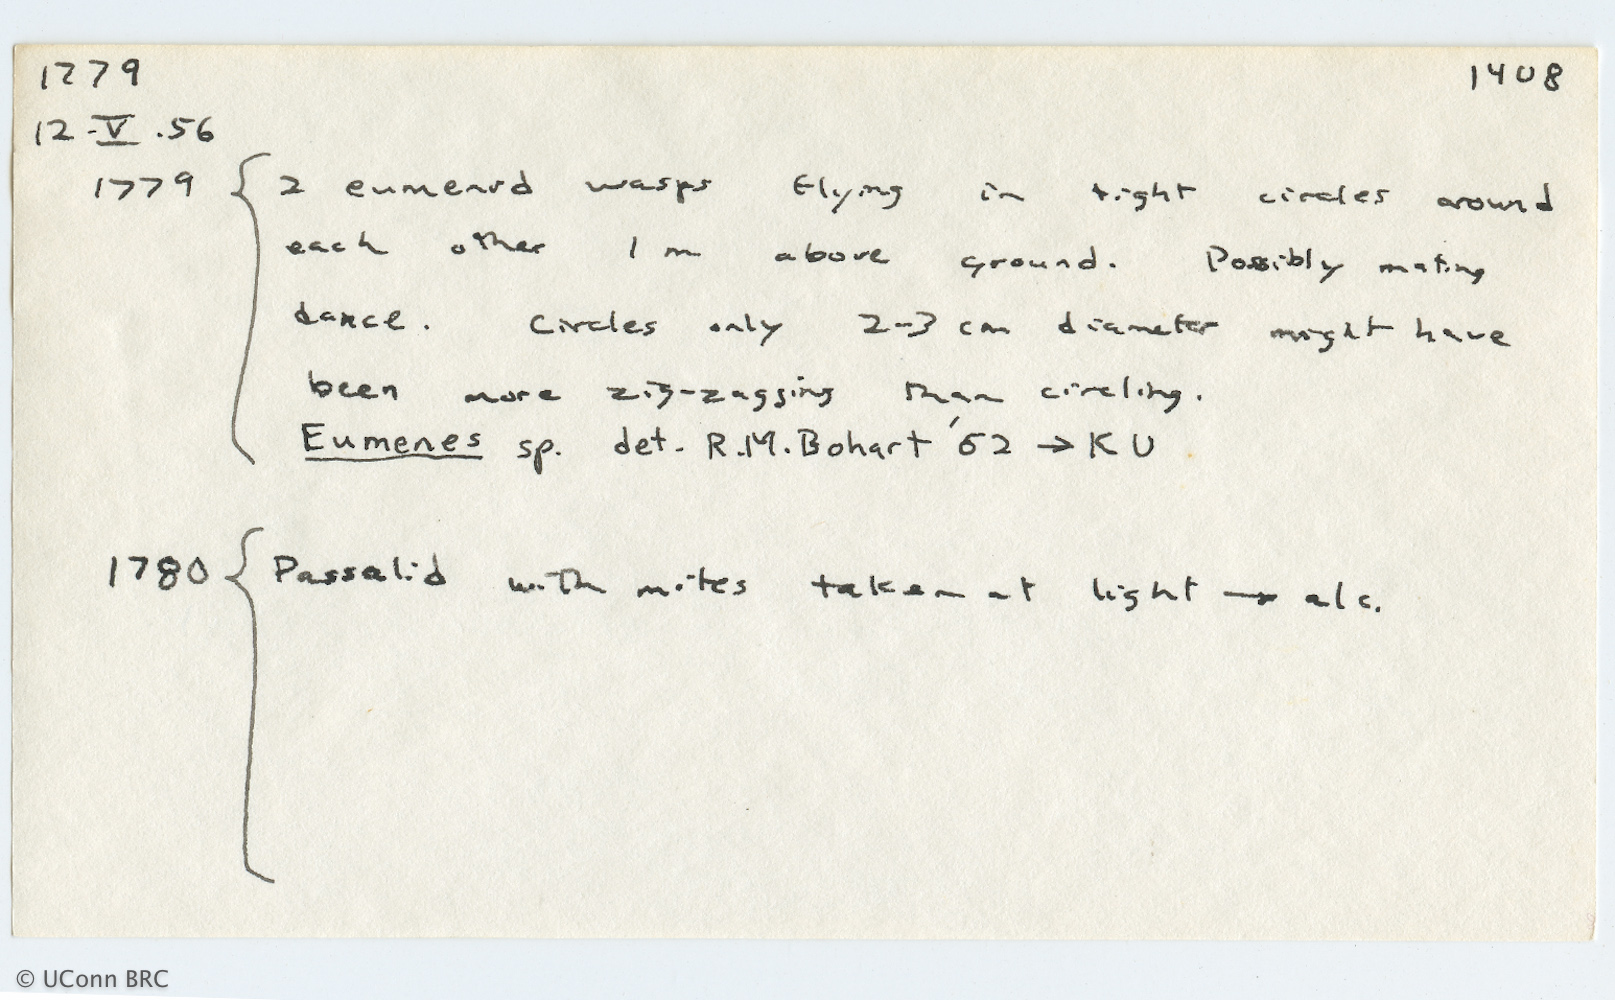 1779 1408
12-V.56
1779 { 2 eumenid wasps flying in tight circles around
each other 1 m above ground. Possibly mating
dance. Circles only 2-3 cm diameter might have
been more zig-zagging than circling.
Eumenes sp. det. R.M.Bohart '62 → KU
1780 { Passalid with mites taken at light → alc.
© UConn BRC